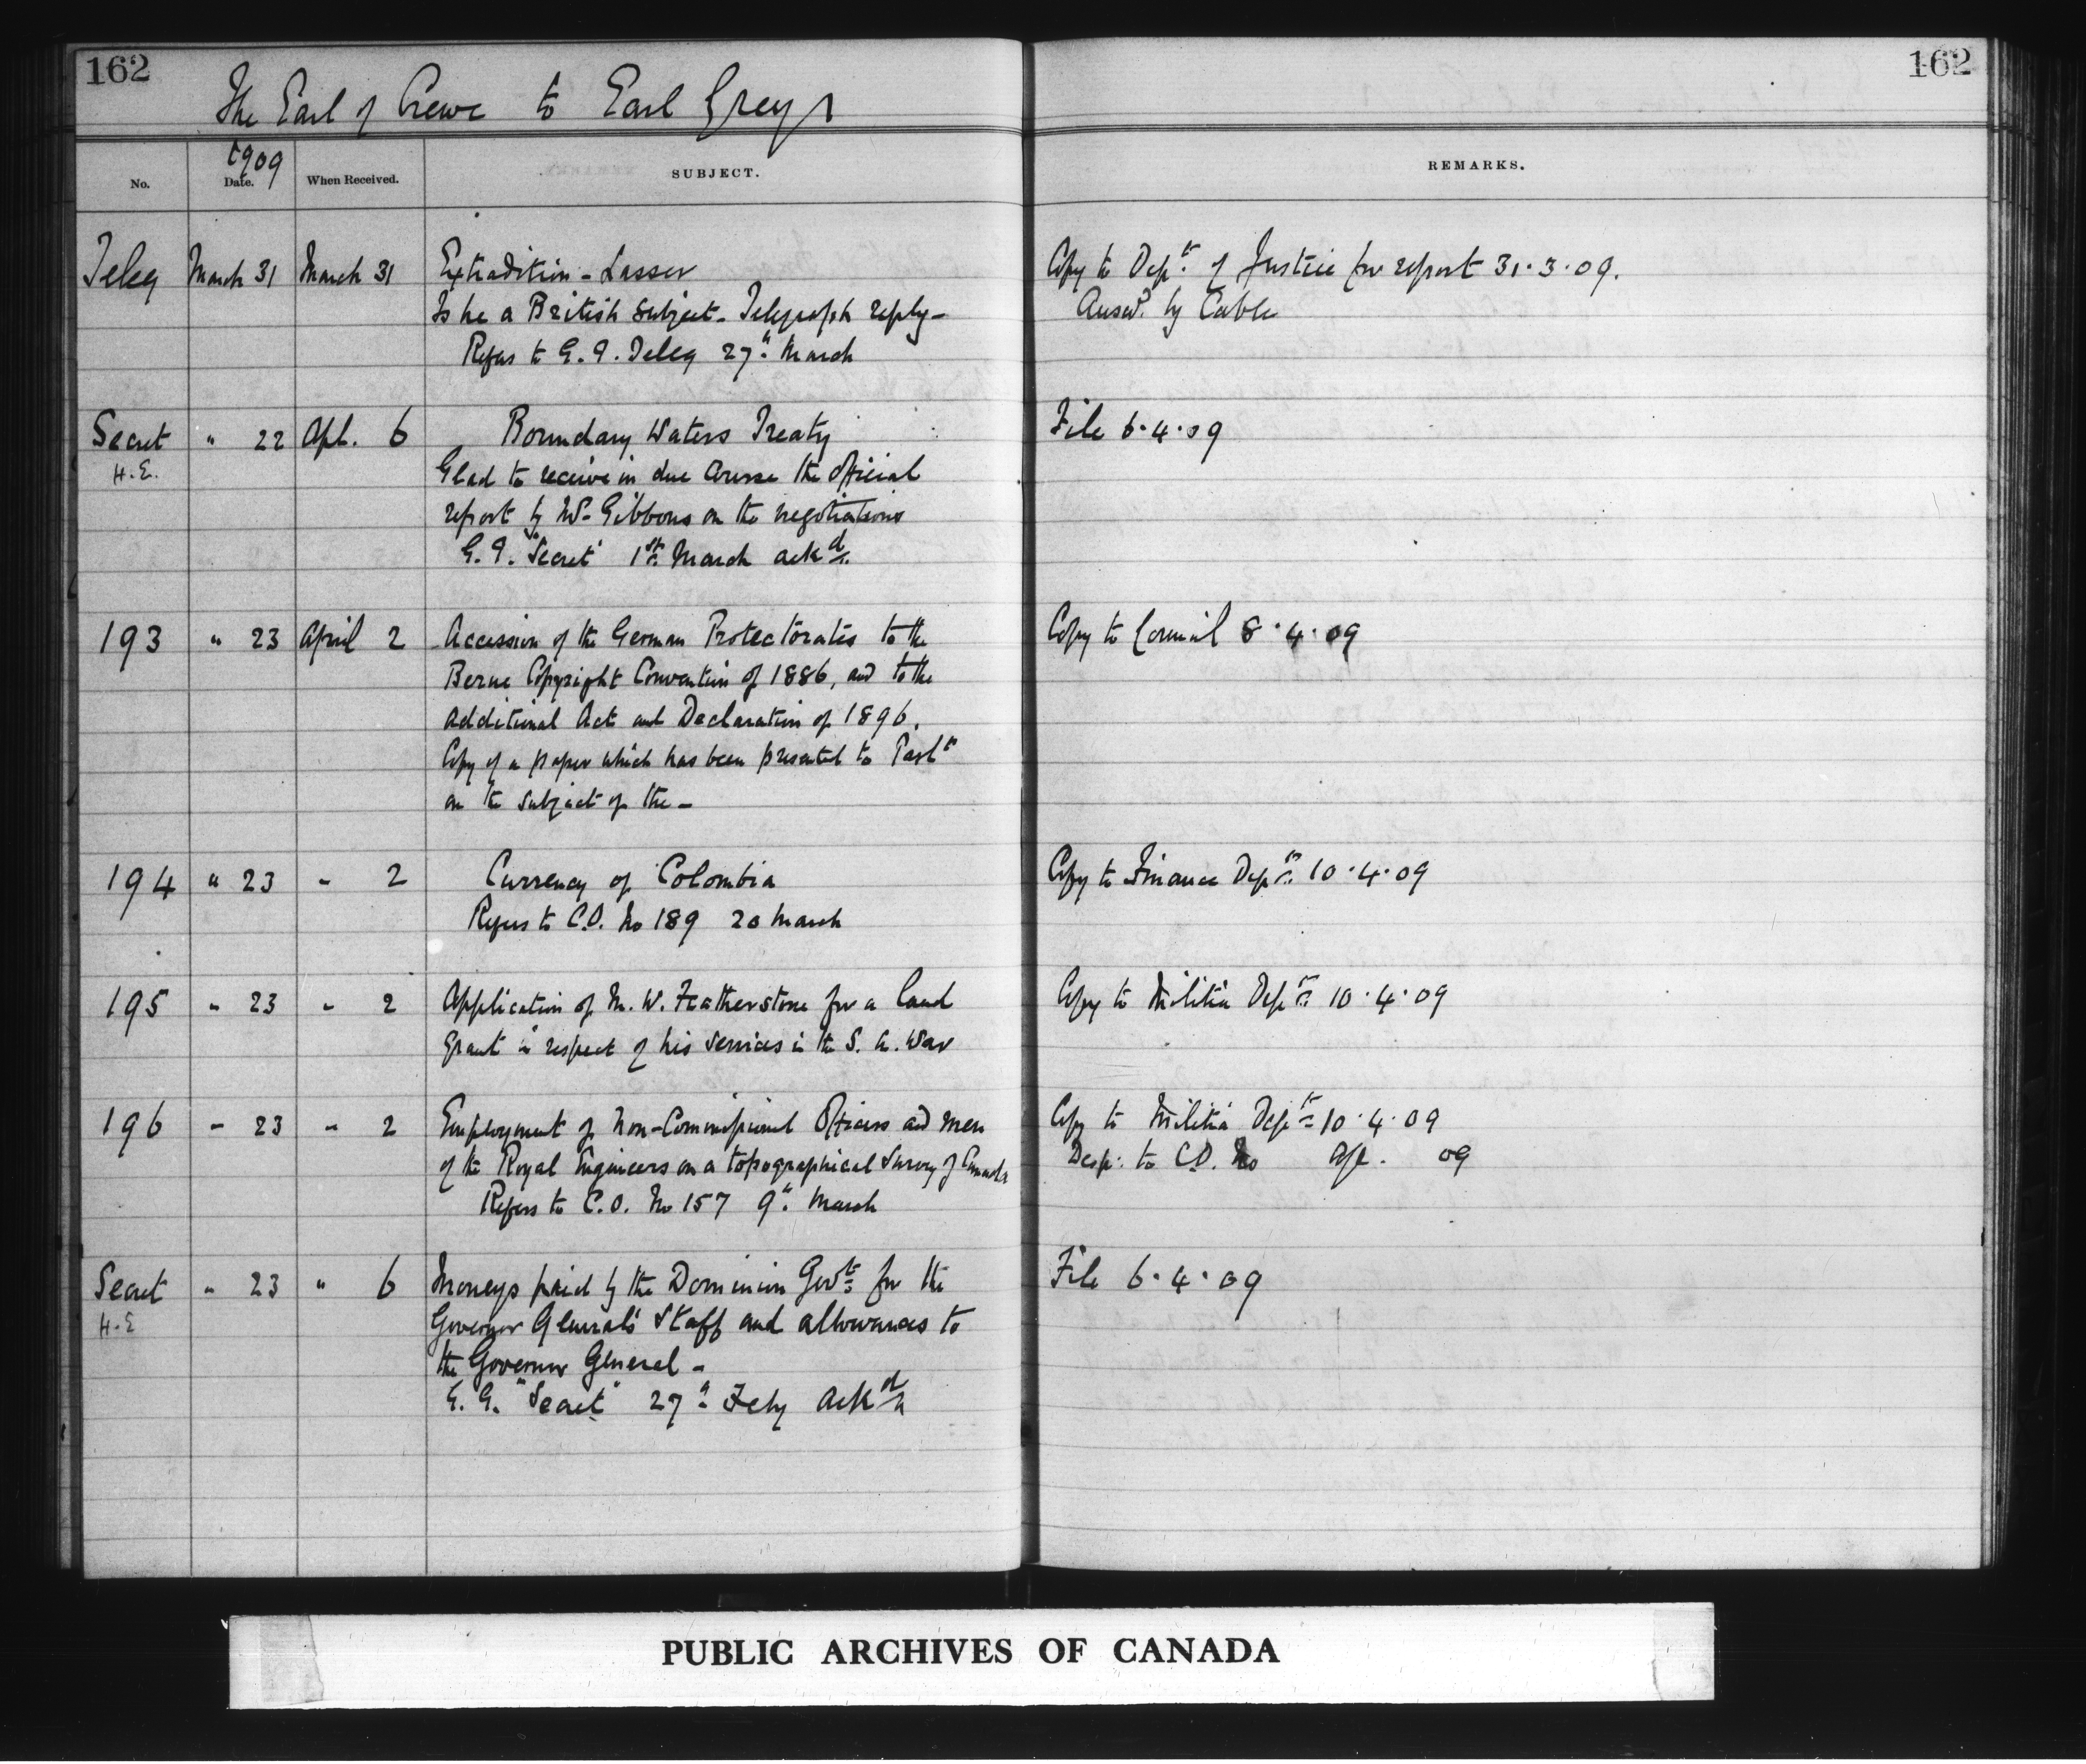 162
162
The Earl of Crewe to Earl Grey
1909
No.
Date.
When Received.
SUBJECT.
REMARKS.
Teleg March 31 March 31 Extradition - Lasser
Is he a British subject - Telegraph reply -
Refers to G.G. Teleg 27th March
Copy to Dept. of Justice for report 31.3.09.
Answd. by Cable
Secret " 22 Apl. 6 Boundary Waters Treaty
H.E.
Glad to receive in due course the official
report by Mr Gibbons on the negotiations
G.G. "Secret" 1st March ackd.
File 6.4.09
193 " 23 April 2 Accession of the German Protectorates to the
Berne Copyright Convention of 1886, and to the
Additional Act and Declaration of 1896.
Copy of a paper which has been presented to Parlt
on the subject of the -
Copy to Council 8.4.09
194 " 23 " 2 Currency of Colombia
Refers to C.O. No 189 20 March
Copy to Finance Dept. 10.4.09
195 " 23 " 2 Application of M. W. Featherstone for a land
grant in respect of his services in the S. A. War
Copy to Militia Dept. 10.4.09
196 " 23 " 2 Employment of Non-Commissioned Officers and men
of the Royal Engineers on a topographical Survey of Canada
Refers to C.O. No 157 9th March
Copy to Militia Dept 10.4.09
Desp. to C.O. No Ap. 09
Secret " 23 " 6 Moneys paid by the Dominion Govt for the
H.E
Governor General's Staff and allowances to
the Governor General -
G.G. "Secret" 27th Feby ackd
File 6.4.09
PUBLIC ARCHIVES OF CANADA